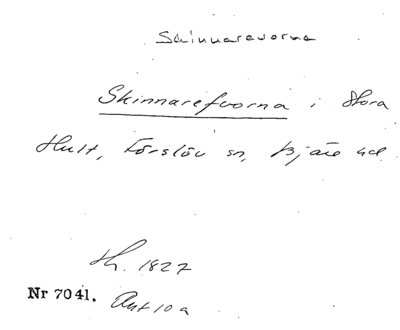 Skinnarevorna
Skinnarefvorna i Stora
Hult, Förslöv sn, Bjäre hd.
Sk. 1827
Nr 7041. Akt 10 a